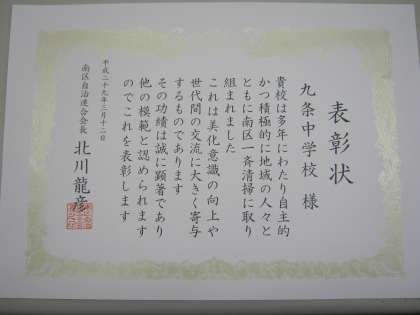 表彰状
九条中学校 様
貴校は多年にわたり自主的
かつ積極的に地域の人々と
ともに南区一斉清掃に取り
組まれました
これは美化意識の向上や
世代間の交流に大きく寄与
するものであります
その功績は誠に顕著であり
他の模範と認められます
のでこれを表彰します
平成二十九年三月十二日
南区自治連合会長 北川龍彦